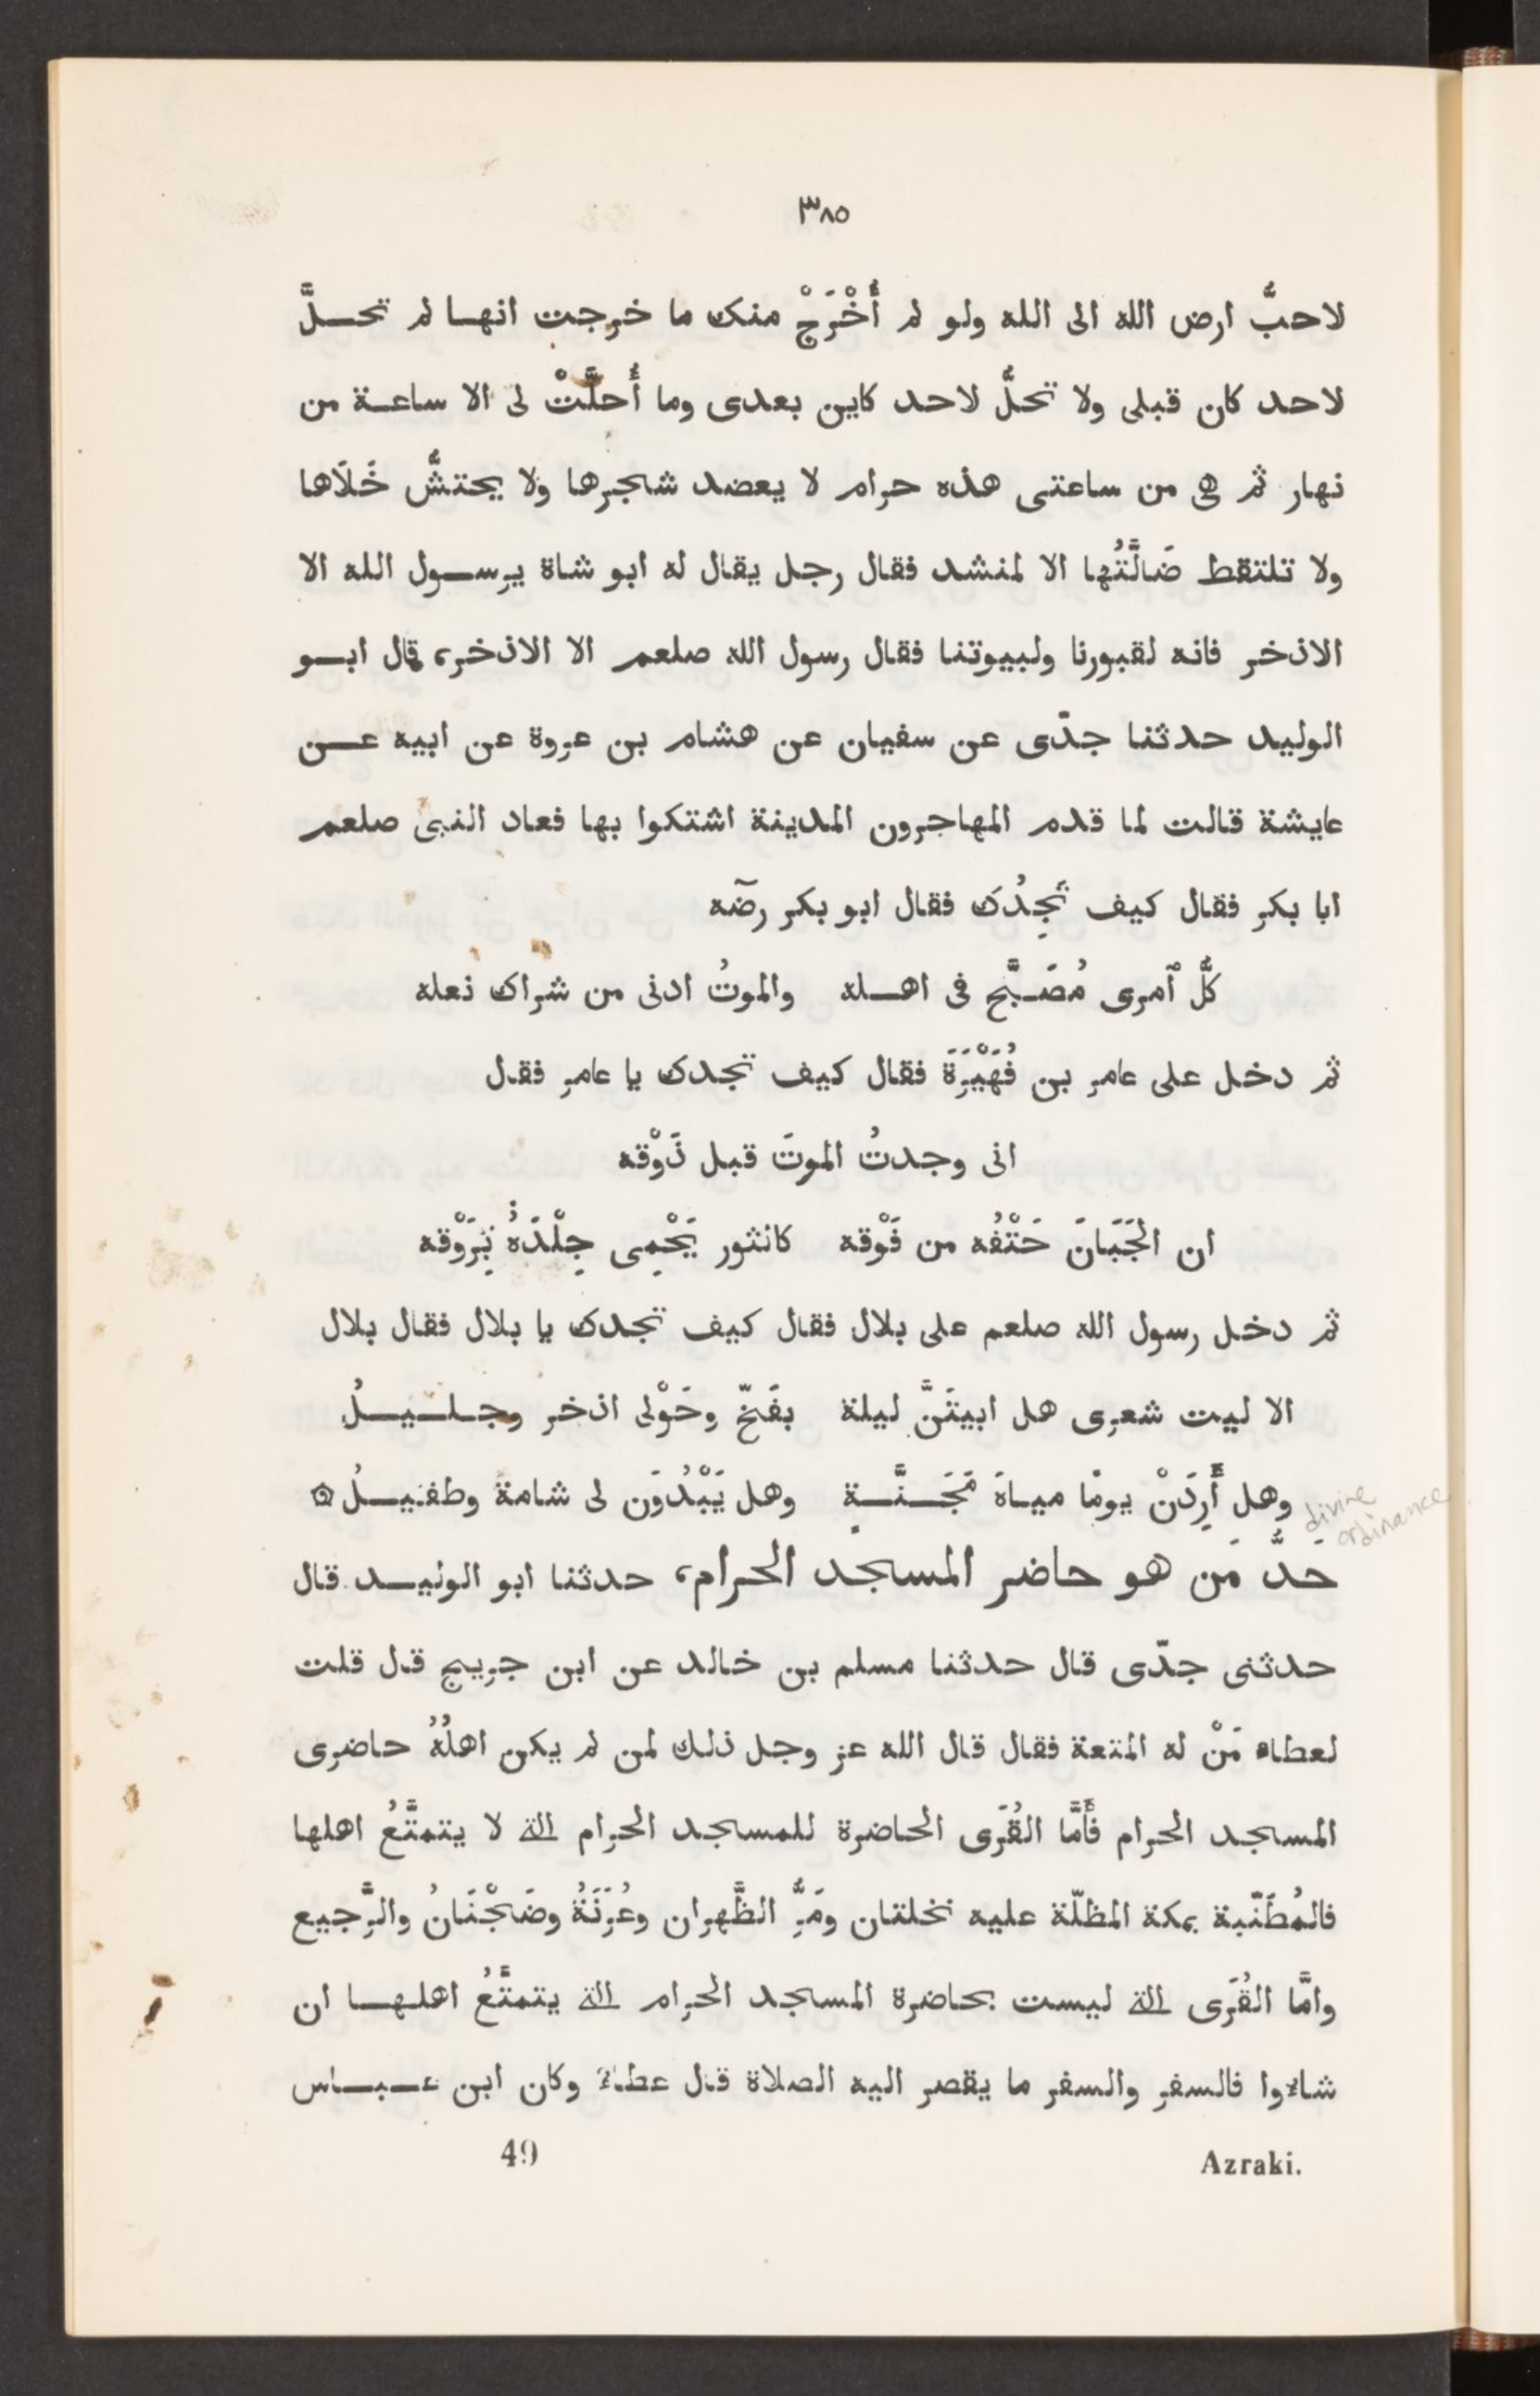 ٣٨٥
لاحبُّ ارض الله الى الله ولو لم أُخْرَجْ منك ما خرجت انهـا لم تحـلَّ
لاحد كان قبلى ولا تحلُّ لاحد كاين بعدى وما أُحلَّتْ لى الا ساعـة من
نهار ثم هى من ساعتى هذه حرام لا يعضد شجرها ولا يحتشُّ خَلَاها
ولا تلتقط ضَالَّتُها الا لمنشد فقال رجل يقال له ابو شاة يرسـول الله الا
الاذخر فانه لقبورنا ولبيوتنا فقال رسول الله صلعم الا الاذخر، قال ابـو
الوليد حدثنا جدّى عن سفيان عن هشام بن عروة عن ابيه عـن
عايشة قالت لما قدم المهاجرون المدينة اشتكوا بها فعاد النبى صلعم
ابا بكر فقال كيف تَجِدُكَ فقال ابو بكر رضّه
كلُّ ٱمرى مُصَـبَّح فى اهـله والموتُ ادنى من شراك نعله
ثم دخل على عامر بن فُهَيْرَةَ فقال كيف تجدك يا عامر فقال
انى وجدتُ الموتَ قبل ذَوْقه
ان الجَبَانَ حَتْفُه من فَوْقه كالثور يَحْمِى جِلْدَهُ بِرَوْقه
ثم دخل رسول الله صلعم على بلال فقال كيف تجدك يا بلال فقال بلال
الا ليت شعرى هل ابيتَنَّ ليلة بفَخّ وحَوْلى اذخر وجـلـيـلُ
وهل أَرِدَنْ يومًا مياهَ مَجَـنَّـةٍ وهل يَبْدُوَن لى شامة وطفيـلُ ۞
divine
ordinance
حَدُّ مَن هو حاضر المسجد الحرام، حدثنا ابو الوليـد قال
حدثنى جدّى قال حدثنا مسلم بن خالد عن ابن جريج قال قلت
لعطاء مَنْ له المتعة فقال قال الله عز وجل ذلك لمن لم يكن اهلُهُ حاضرى
المسجد الحرام فأَمَّا القُرَى الحاضرة للمسجد الحرام التى لا يتمتَّعُ اهلها
فالمُطَنّبة بمكة المظلّة عليه نخلتان ومَرُّ الظَّهران وعُرَنَةُ وضَجْنَانُ والرَّجيع
وامَّا القُرَى التى ليست بحاضرة المسجد الحرام التى يتمتَّعُ اهلـهـا ان
شاءوا فالسفر والسفر ما يقصر اليه الصلاة قال عطاء وكان ابن عـبـاس
Azraki. 49